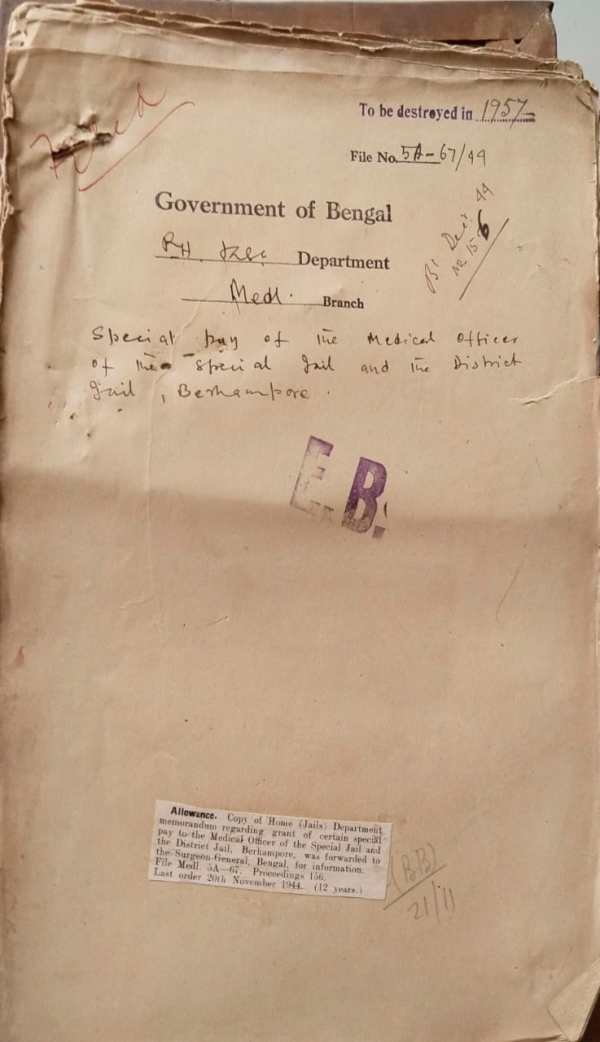 Filed
To be destroyed in 1957
File No. 5A-67/44
Government of Bengal
PH & LSG Department
Medl. Branch
B' Dec. 44
No 156
Special pay of the Medical Officer
of the Special Jail and the District
Jail, Berhampore.
E.B.
Allowance. Copy of Home (Jails) Department
memorandum regarding grant of certain special
pay to the Medical Officer of the Special Jail and
the District Jail, Berhampore, was forwarded to
the Surgeon-General, Bengal, for information.
File Medl. 5A—67. Proceedings 156.
Last order 20th November 1944. (12 years.)
(BB)
21/11